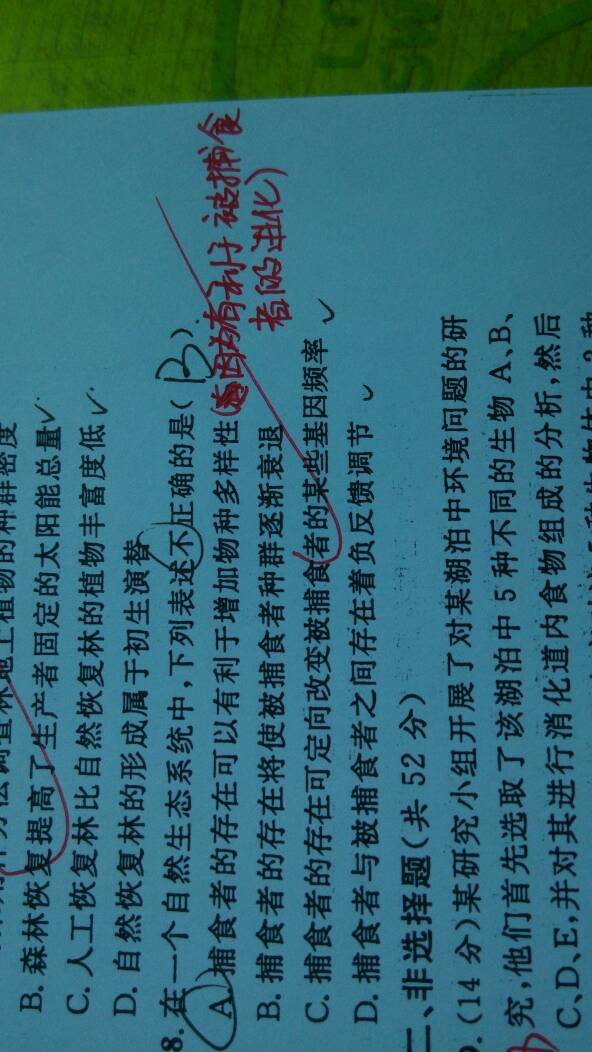 B. 森林恢复提高了生产者固定的太阳能总量✓
C. 人工恢复林比自然恢复林的植物丰富度低✓
D. 自然恢复林的形成属于初生演替
8. 在一个自然生态系统中,下列表述不正确的是( B )
A. 捕食者的存在可以有利于增加物种多样性(因为有利于被捕食
者的进化)
B. 捕食者的存在将使被捕食者种群逐渐衰退
C. 捕食者的存在可定向改变被捕食者的某些基因频率 ✓
D. 捕食者与被捕食者之间存在着负反馈调节 ✓
二、非选择题(共 52 分)
(14 分)某研究小组开展了对某湖泊中环境问题的研
究,他们首先选取了该湖泊中 5 种不同的生物 A、B、
C、D、E,并对其进行消化道内食物组成的分析,然后